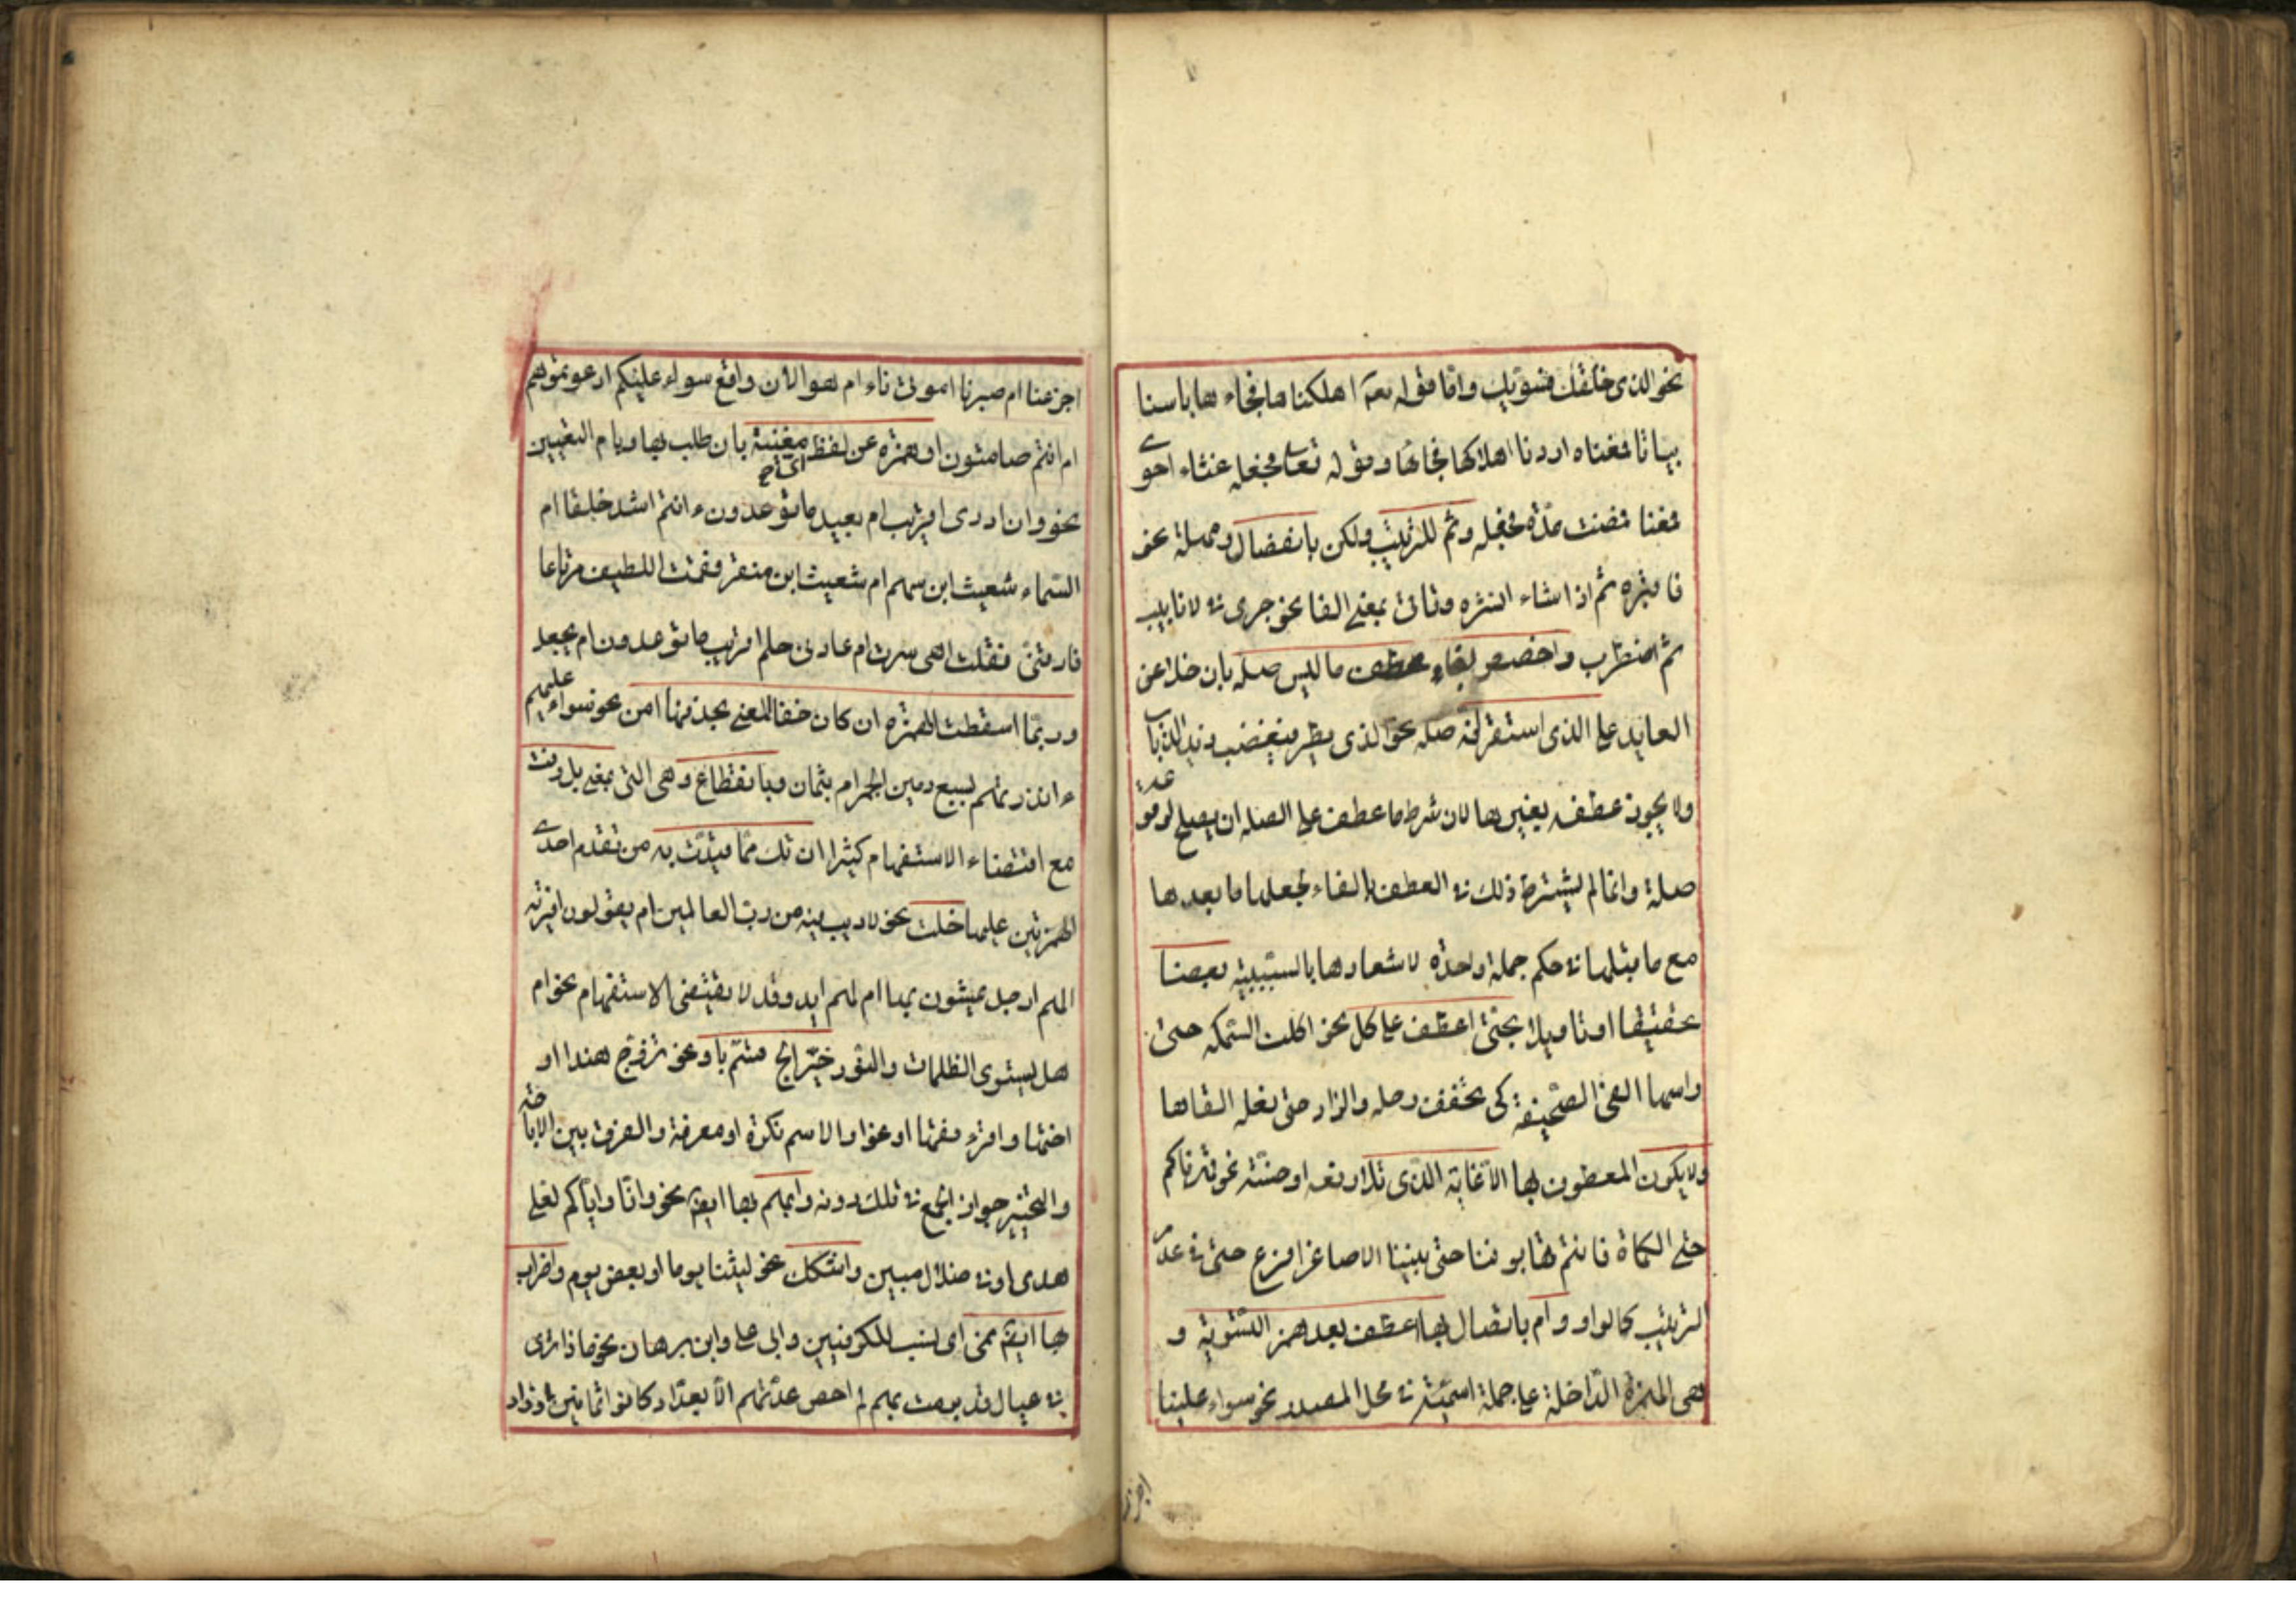 نحو الذى خلقك فسويك واما قوله تعه اهلكناها فجاءها باسنا
بياتا فمعناه اردنا اهلاكها فجائها وقوله تعالى فجعله غثاء احوى
فمعنا فمضت مدة فجعله وثم للترتيب ولكن بانفصال ومهملة نحو
فاقبره ثم اذا شاء انشره وتاتى بمعنى الفا نحو جرى فى الانابيب
ثم اضطرب واخصص بفاء عطف ما ليس صله بان خلا عن
العايد على الذى استقر انه صله نحو الذى يطير فيغضب زيد الذباب
ولا يجوز عطفه بغيرها لان شرط ما عطف على الصله ان يصلح لوقوعه
صلة وانما لم يشترط ذلك فى العطف بالفاء لجعلها ما بعدها
مع ما قبلها فى حكم جملة واحدة لاشعارها بالسببية بعضا
تحقيقا او تاويلا بحتى اعطف على كل نحو اكلت السمكه حتى
راسها القى الصحيفة كى يخفف رحله والزاد حتى نعله القاها
ولا يكون المعطوف بها الا غاية الذى تلا رفعه او خسته نحو قهرناكم
حتى الكماة فانتم تهابوننا حتى بنينا الاصاغرا فرع حتى فى عدم
الترتيب كالواو وام باتصال بها اعطف بعد همز التسوية و
هى الهمزة الداخلة على جملة اسمية فى محل المصدر نحو سواء علينا
اجزعنا ام صبرنا اموتى ناء ام هو الان واقع سواء عليكم ادعوتموهم
ام انتم صامتون او همزة عن لفظ اى مغنية بان طلب بها وبام التعيين
نحو وان ادرى اقريب ام بعيد ما توعدون ءانتم اشد خلقا ام
السماء شعيث ابن سهم ام شعيث ابن منقر فقمت للطيف مرتاعا
فارقنى فقلت اهى سرت ام عادنى حلم اقريب ما توعدون ام يجعل
وربما اسقطت الهمزه ان كان خفا المعنى بحذفها امن نحو سواء عليهم
ءانذرتهم بسبع رمين الجمر ام بثمان وبانقطاع وهى التى بمعنى بل وفت
مع اقتضاء الاستفهام كثيرا ان تك مما قيدت به من تقدم احدى
الهمزتين عليها خلت نحو لا ريب فيه من رب العالمين ام يقولون افتريه
الهم ارجل يمشون بها ام لهم ايد وقد لا يقتضى الاستفهام نحو ام
هل يستوى الظلمات والنور خير ابح قسم باو نحو تزوج هندا او
اختها واقرء فقها او نحوا والاسم نكرة او معرفة والفرق بين الاباحة
والتخيير جواز الجمع فى تلك دونه وابهم بها ايضا نحو وانا واياكم لعلى
هدى او فى ضلال مبين واشكك نحو لبثنا يوما او بعض يوم واضراب
بها ايضا نمى اى نسب للكوفيين وابى على وابن برهان نحو ماذا ترى
فى عيال قد برمت بهم لم احص عدتهم الا بعداد كانوا ثمانين او زاد